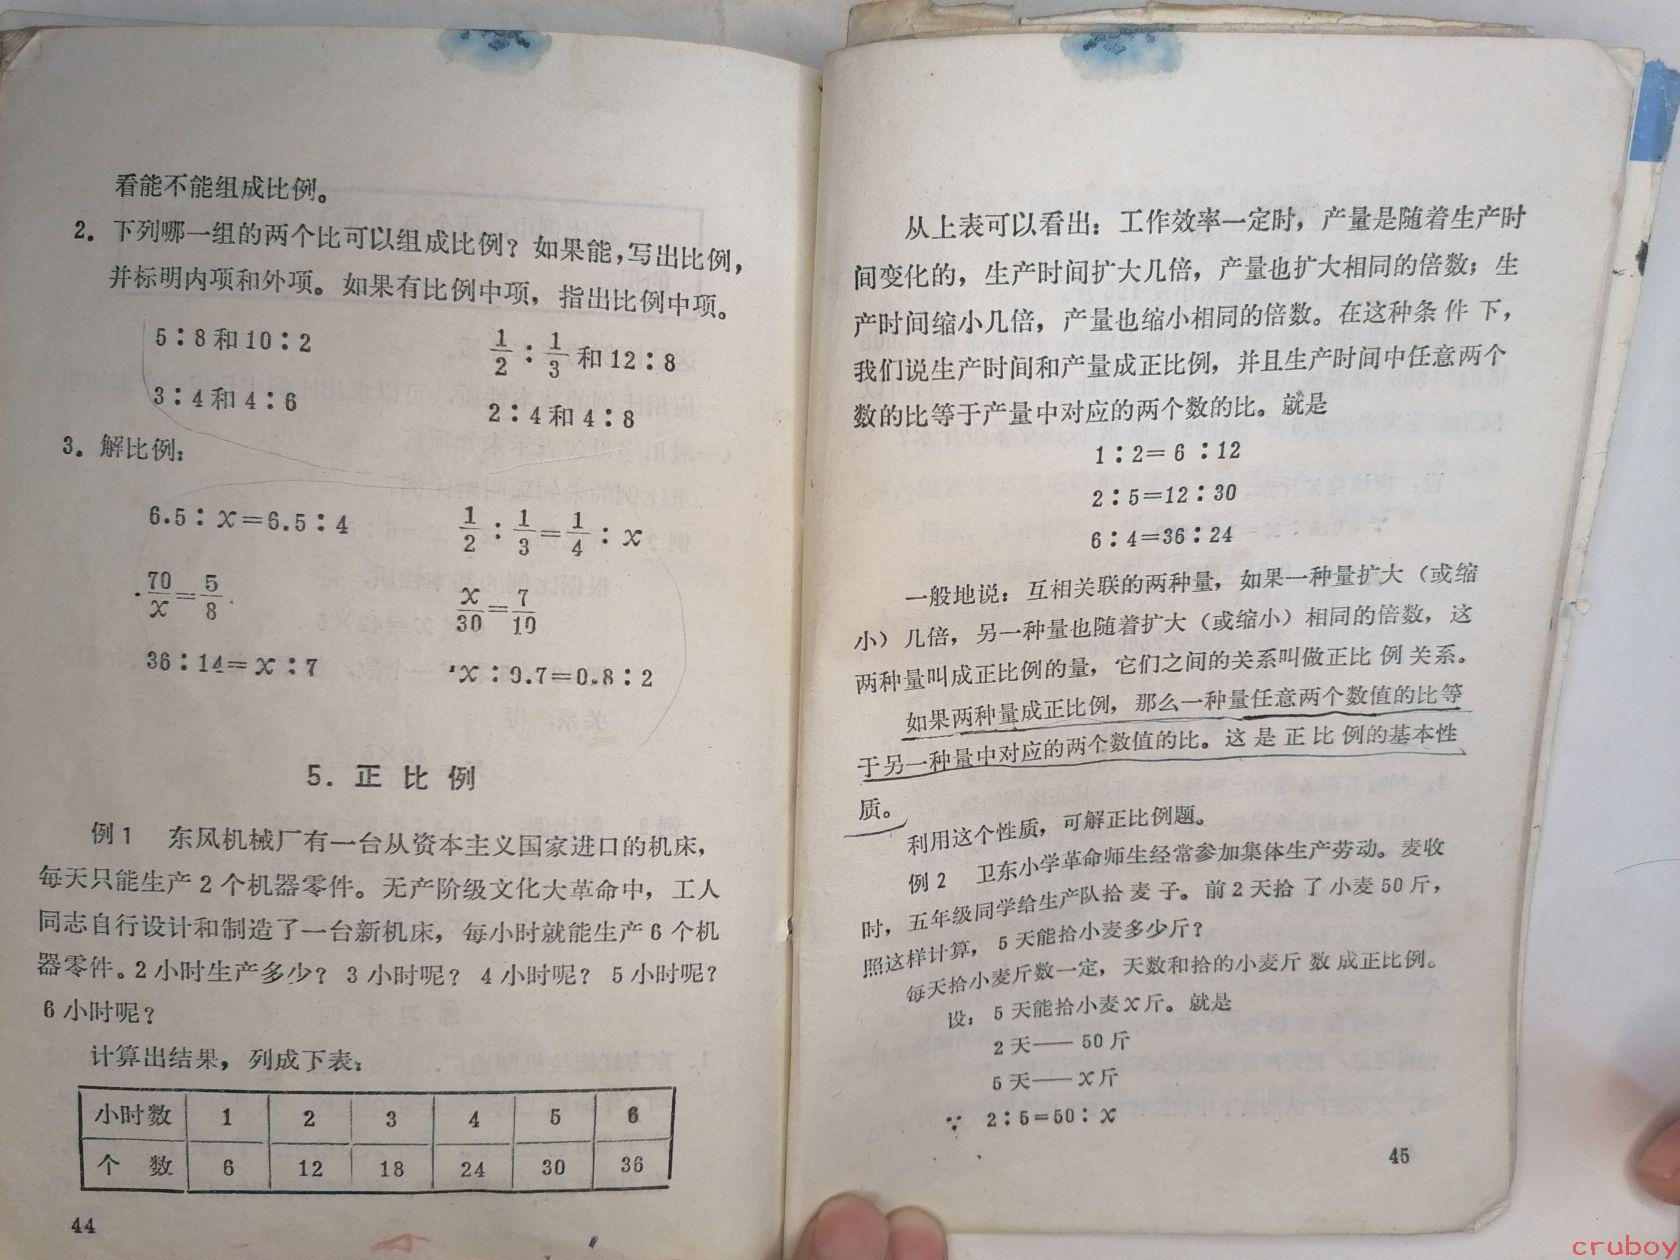 看能不能组成比例。
2. 下列哪一组的两个比可以组成比例？如果能，写出比例，
并标明内项和外项。如果有比例中项，指出比例中项。
5∶8和10∶2　1/2∶1/3和12∶8
3∶4和4∶6　2∶4和4∶8
3. 解比例：
6.5∶x=6.5∶4　1/2∶1/3=1/4∶x
70/x=5/8　x/30=7/10
36∶14=x∶7　x∶0.7=0.8∶2
5. 正比例
例1　东风机械厂有一台从资本主义国家进口的机床，
每天只能生产2个机器零件。无产阶级文化大革命中，工人
同志自行设计和制造了一台新机床，每小时就能生产6个机
器零件。2小时生产多少？3小时呢？4小时呢？5小时呢？
6小时呢？
计算出结果，列成下表：
小时数 1 2 3 4 5 6
个数 6 12 18 24 30 36
44
从上表可以看出：工作效率一定时，产量是随着生产时
间变化的，生产时间扩大几倍，产量也扩大相同的倍数；生
产时间缩小几倍，产量也缩小相同的倍数。在这种条件下，
我们说生产时间和产量成正比例，并且生产时间中任意两个
数的比等于产量中对应的两个数的比。就是
1∶2=6∶12
2∶5=12∶30
6∶4=36∶24
一般地说：互相关联的两种量，如果一种量扩大（或缩
小）几倍，另一种量也随着扩大（或缩小）相同的倍数，这
两种量叫成正比例的量，它们之间的关系叫做正比例关系。
如果两种量成正比例，那么一种量任意两个数值的比等
于另一种量中对应的两个数值的比。这是正比例的基本性
质。
利用这个性质，可解正比例题。
例2　卫东小学革命师生经常参加集体生产劳动。麦收
时，五年级同学给生产队拾麦子。前2天拾了小麦50斤，
照这样计算，5天能拾小麦多少斤？
每天拾小麦斤数一定，天数和拾的小麦斤数成正比例。
设：5天能拾小麦x斤。就是
2天——50斤
5天——x斤
∵ 2∶5=50∶x
45
cruboy